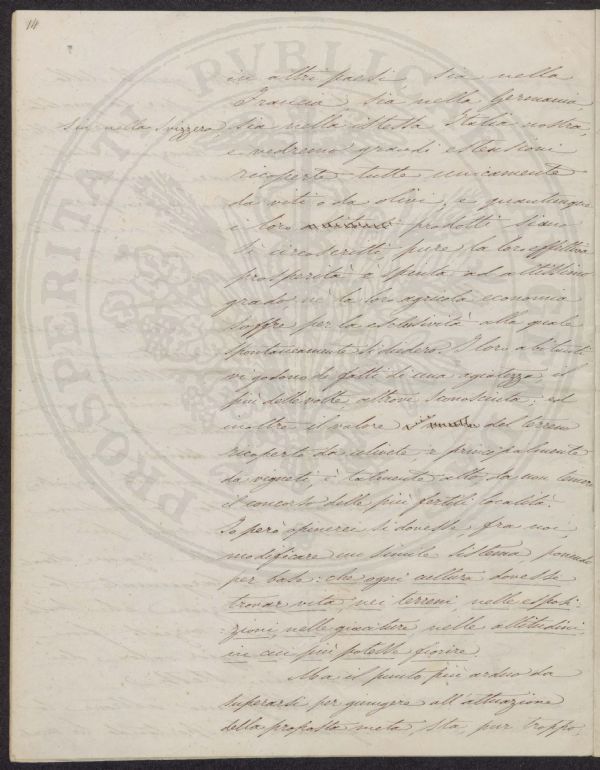 14
in altri paesi sia nella
Francia, sia nella Germania,
sia nella Svizzera, sia nella istessa Italia nostra
e vedremo grandi estensioni
ricoperte tutte unicamente
da viti o da olivi, e quantunque
i loro prodotti siano
sì circoscritti, pure la loro effettiva
prosperità è spinta ad altissimo
grado nè la loro agricola economia
soffre per la esclusività alla quale
spontaneamente si diedero. I loro abitanti
vi godono di fatti di una agiatezza il
più delle volte altrove sconosciuta; ed
inoltre il valore del terreno
ricoperto da oliveti e principalmente
da vigneti, è talmente alto, da non temere
il concorso delle più fertili località.
Io però opinerei si dovesse, fra noi,
modificare un simile sistema, ponendo
per base: che ogni cultura dovesse
trovar vita, nei terreni, nelle esposi-
-zioni, nelle giaciture, nelle altitudini
in cui più potesse fiorire
Ma il punto più arduo da
superarsi per giungere all'attuazione
della proposta meta, sta pur troppo,
PROSPERITATI PVBLICAE